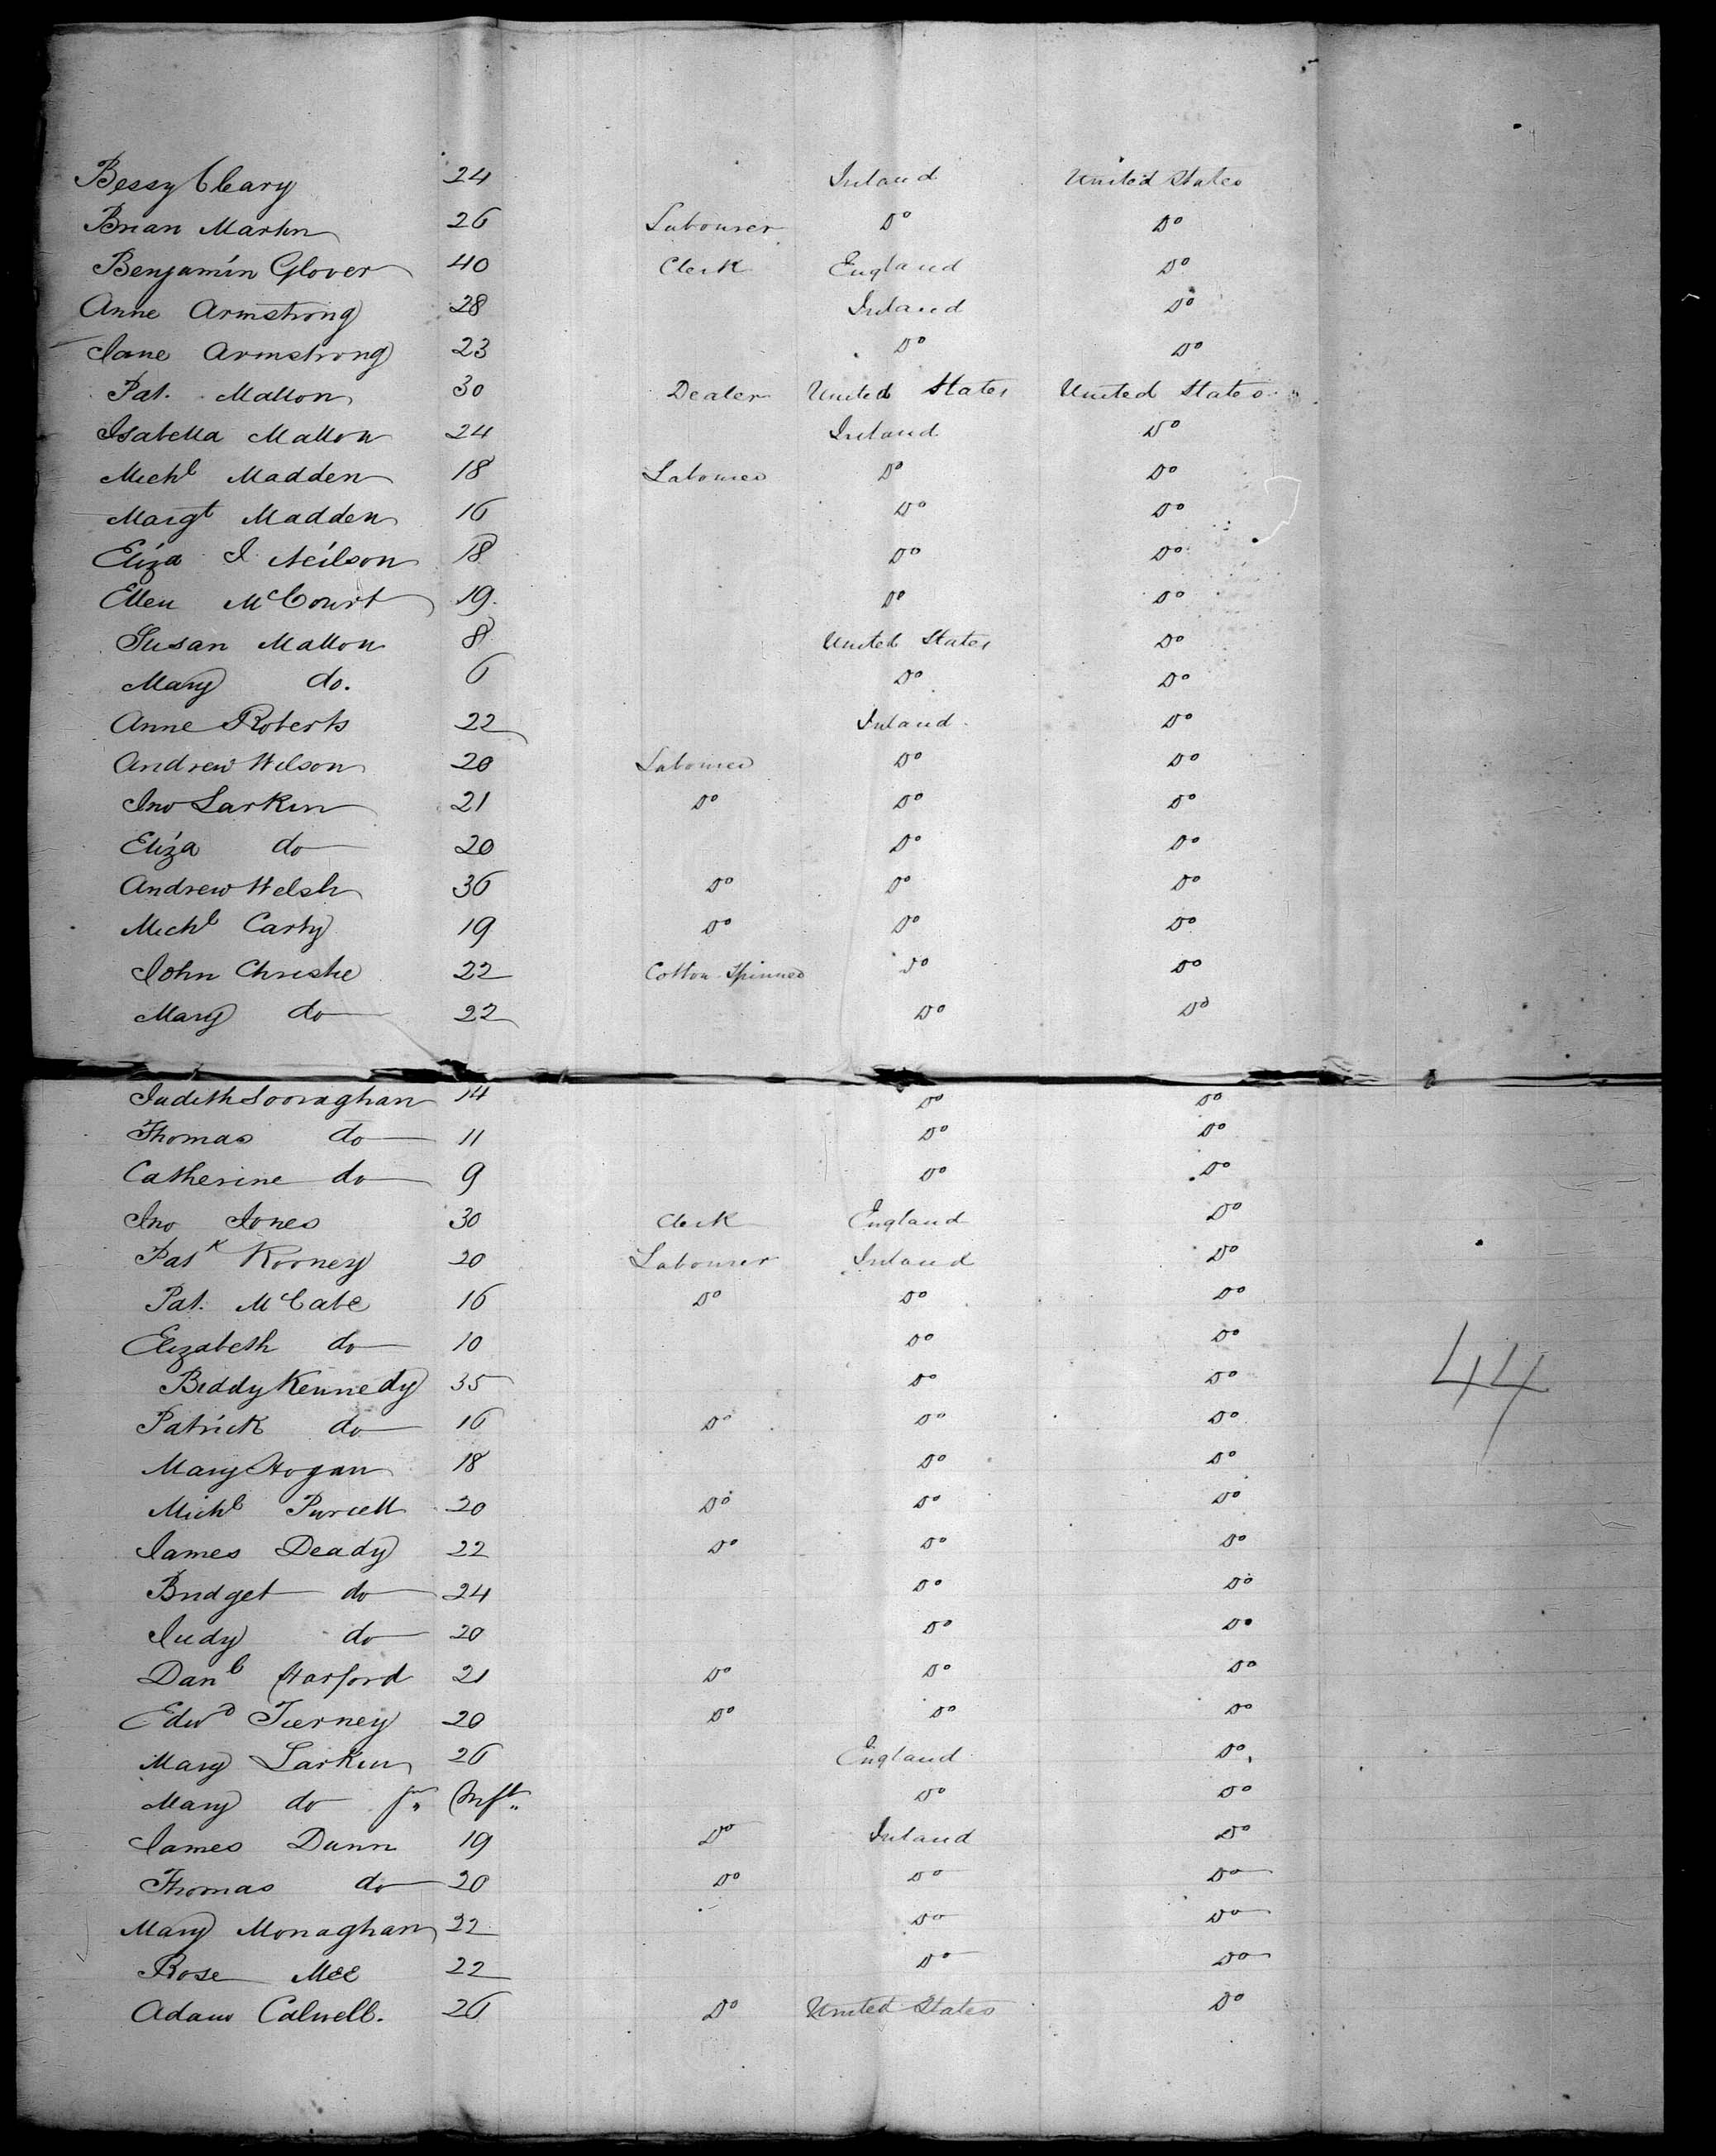 Bessy Cleary 24 Ireland United States
Brian Martin 26 Labourer Do Do
Benjamin Glover 40 Clerk England Do
Anne Armstrong 28 Ireland Do
Jane Armstrong 23 Do Do
Pat. Mallon 30 Dealer United States United States
Isabella Mallon 24 Ireland Do
Michl Madden 18 Labourer Do Do
Margt Madden 16 Do Do
Eliza J. Neilson 18 Do Do
Ellen McCourt 19 Do Do
Susan Mallon 8 United States Do
Mary do. 6 Do Do
Anne Roberts 22 Ireland Do
Andrew Wilson 20 Labourer Do Do
Jno Larkin 21 Do Do Do
Eliza do 20 Do Do
Andrew Welsh 36 Do Do Do
Michl Carty 19 Do Do Do
John Christie 22 Cotton Spinner Do Do
Mary do 22 Do Do
Judith 14 Do Do
Thomas do 11 Do Do
Catherine do 9 Do Do
Jno Jones 30 Clerk England Do
Patk Rooney 20 Labourer Ireland Do
Pat. McCabe 16 Do Do Do
Elizabeth do 10 Do Do
44
Biddy Kennedy 35 Do Do
Patrick do 16 Do Do Do
Mary Hogan 18 Do Do
Michl Purcell 20 Do Do Do
James Deady 22 Do Do Do
Bridget do 24 Do Do
Judy do 20 Do Do
Danl Harford 21 Do Do Do
Edwd Tierney 20 Do Do Do
Mary Larkin 26 England Do
Mary do Jr Inft Do Do
James Dunn 19 Do Ireland Do
Thomas do 20 Do Do Do
Mary Monaghan 22 Do Do
Rose Mee 22 Do Do
Adam Calwell. 26 Do United States Do